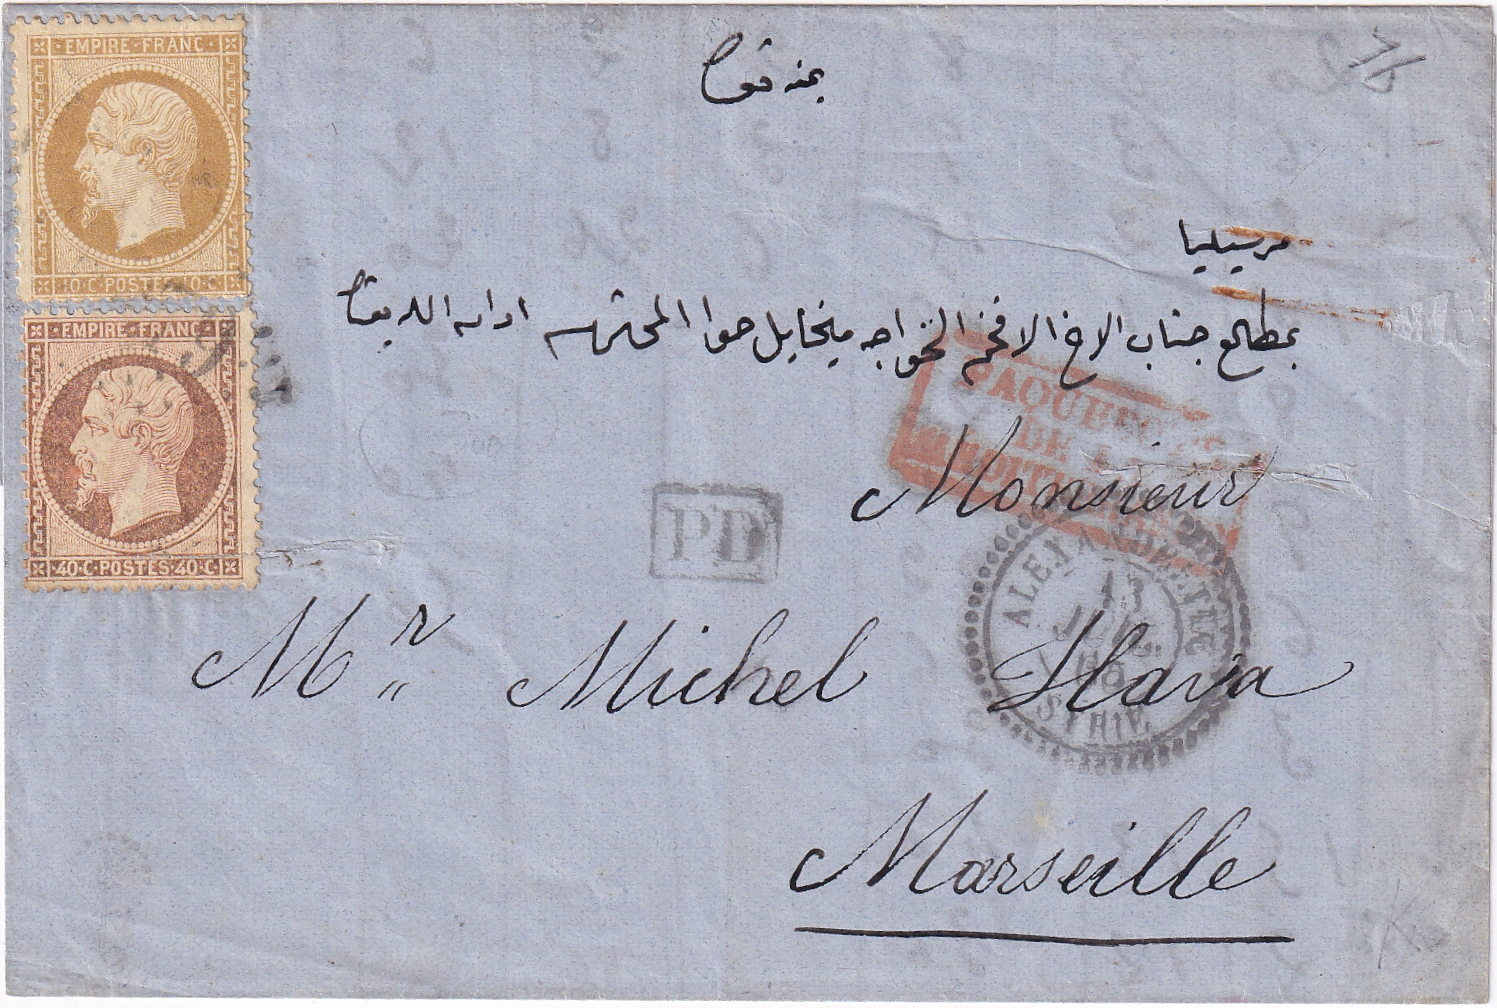 EMPIRE·FRANC·
10·C·POSTES·10·C
EMPIRE·FRANC·
40·C·POSTES·40·C
بمنه تعا
مرسيليا
بمطالع جناب الاخ الافخم الخواجه ميخايل حوا المحترم ادامه الله تعا
PAQUEBOTS
DE LA
MÉDITERRANÉE
PD
Monsieur
ALEXANDRETTE
13
JUIL.
SYRIE
Mr Michel Hava
Marseille